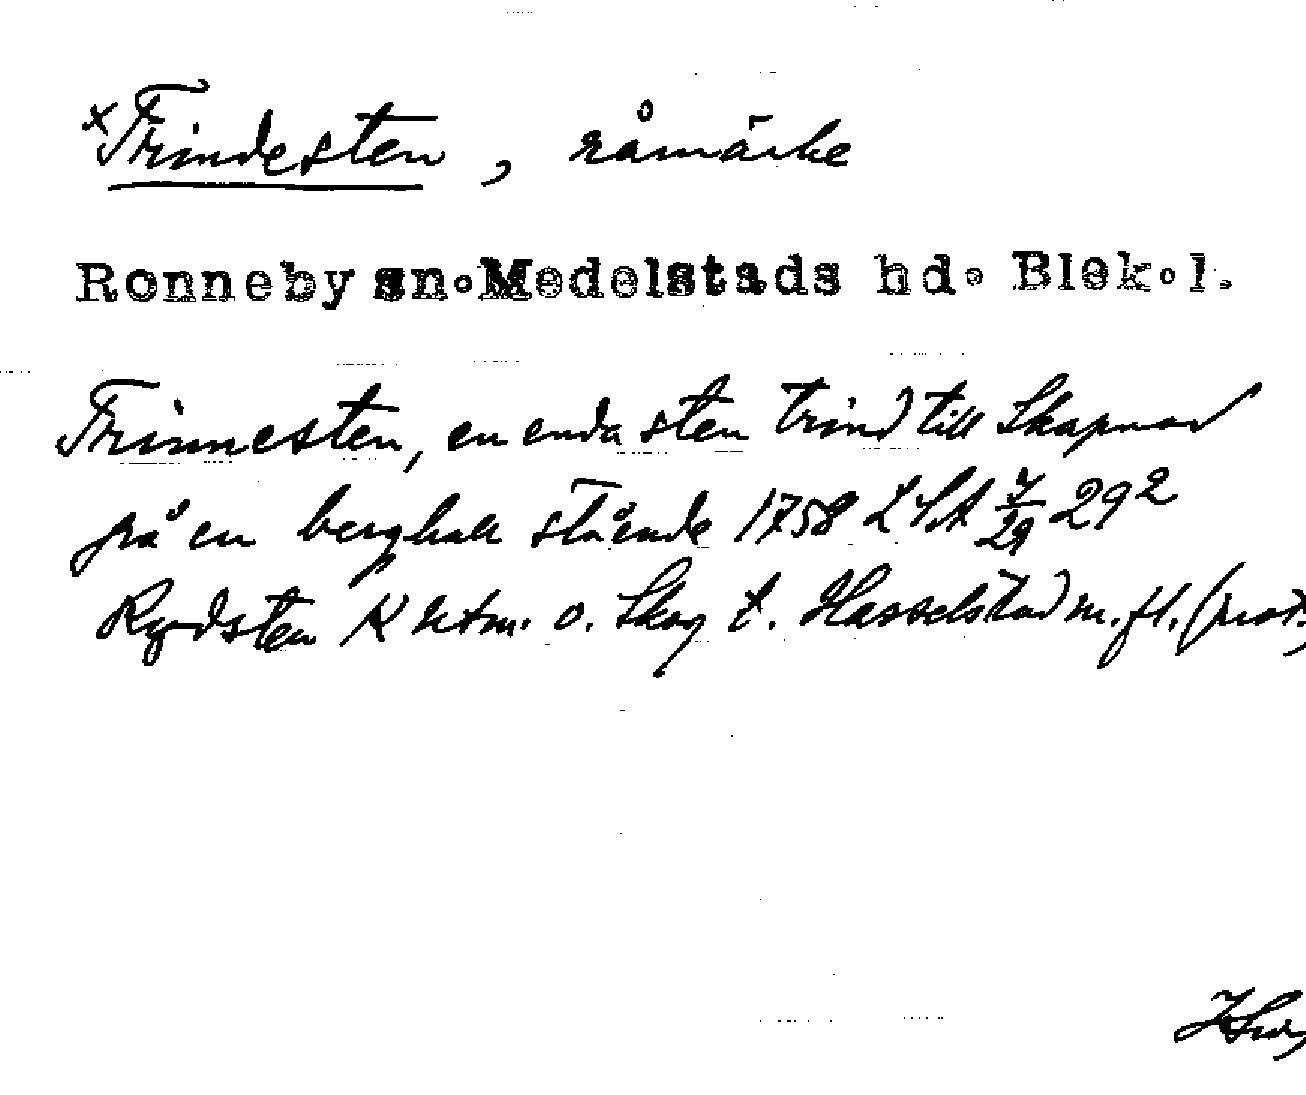 ×Trindesten, råmärke
Ronneby sn. Medelstads hd. Blek. l.
Trinnesten, en enda sten trind till Skapnad
på en berghall stående 1758 LSA 29²
Rydsten K utm. o. Skog t. Hasselstad m. fl. (prot.)